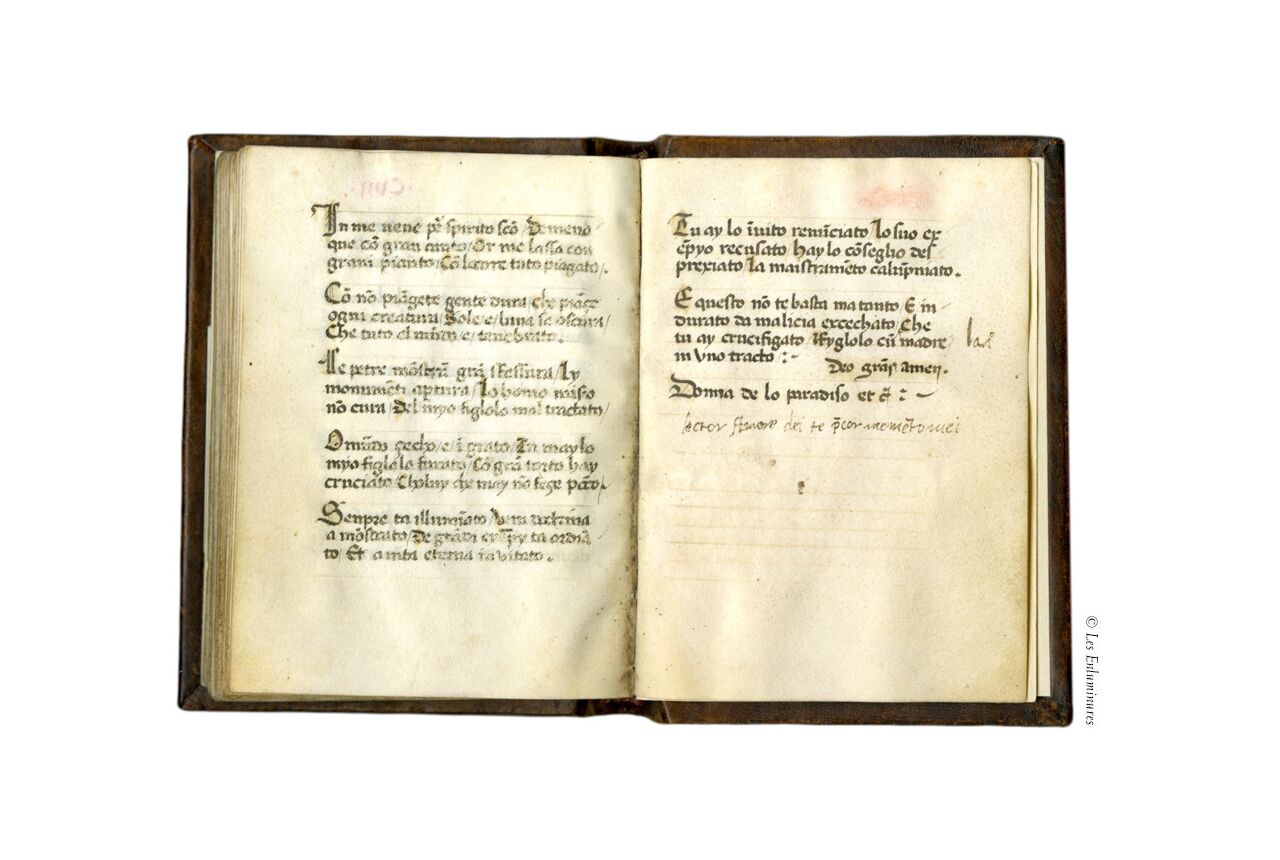 .CVII.
In me vene pr̃ spirito scõ / De meno
que cõ gran / Or me lassa con
grani pianto / Cõ lo core tuto piagato /.
Cõ nõ piãgete gente dura / che piãge
ogni creatura / Sole / e / luna se oscura /
Che tuto el / e / tenebrato .
Le petre mõstrã grã / Ly
monumẽti aptura / Lo homo
nõ cura / Del myo figlolo mal tractato /
O mũdo çecho / e / ĩ grato / Tu may lo
myo figlolo furato / Cõ grã torto hay
cruciato / che may nõ feçe
Senpre ta illumĩato / doctrina
a mõstrato / De grãdi ta ordiã
to / Et a vita eterna ĩvitato .
Tu ay lo ĩuito renũciato / Lo suo ex
ẽpyo recusato / hay lo cõseglio des
prexiato / La maistramẽto calũpniato .
E questo nõ te basta ma tanto / E in
durato da malicia excechato / Che
tu ay crucifigato / figlolo cũ madre /
in vno tracto : ~
Deo grãs amen .
Donna de lo paradiso et c̃ : ~
lector amore dei te p̃cor memẽto mei
© Les Enluminures